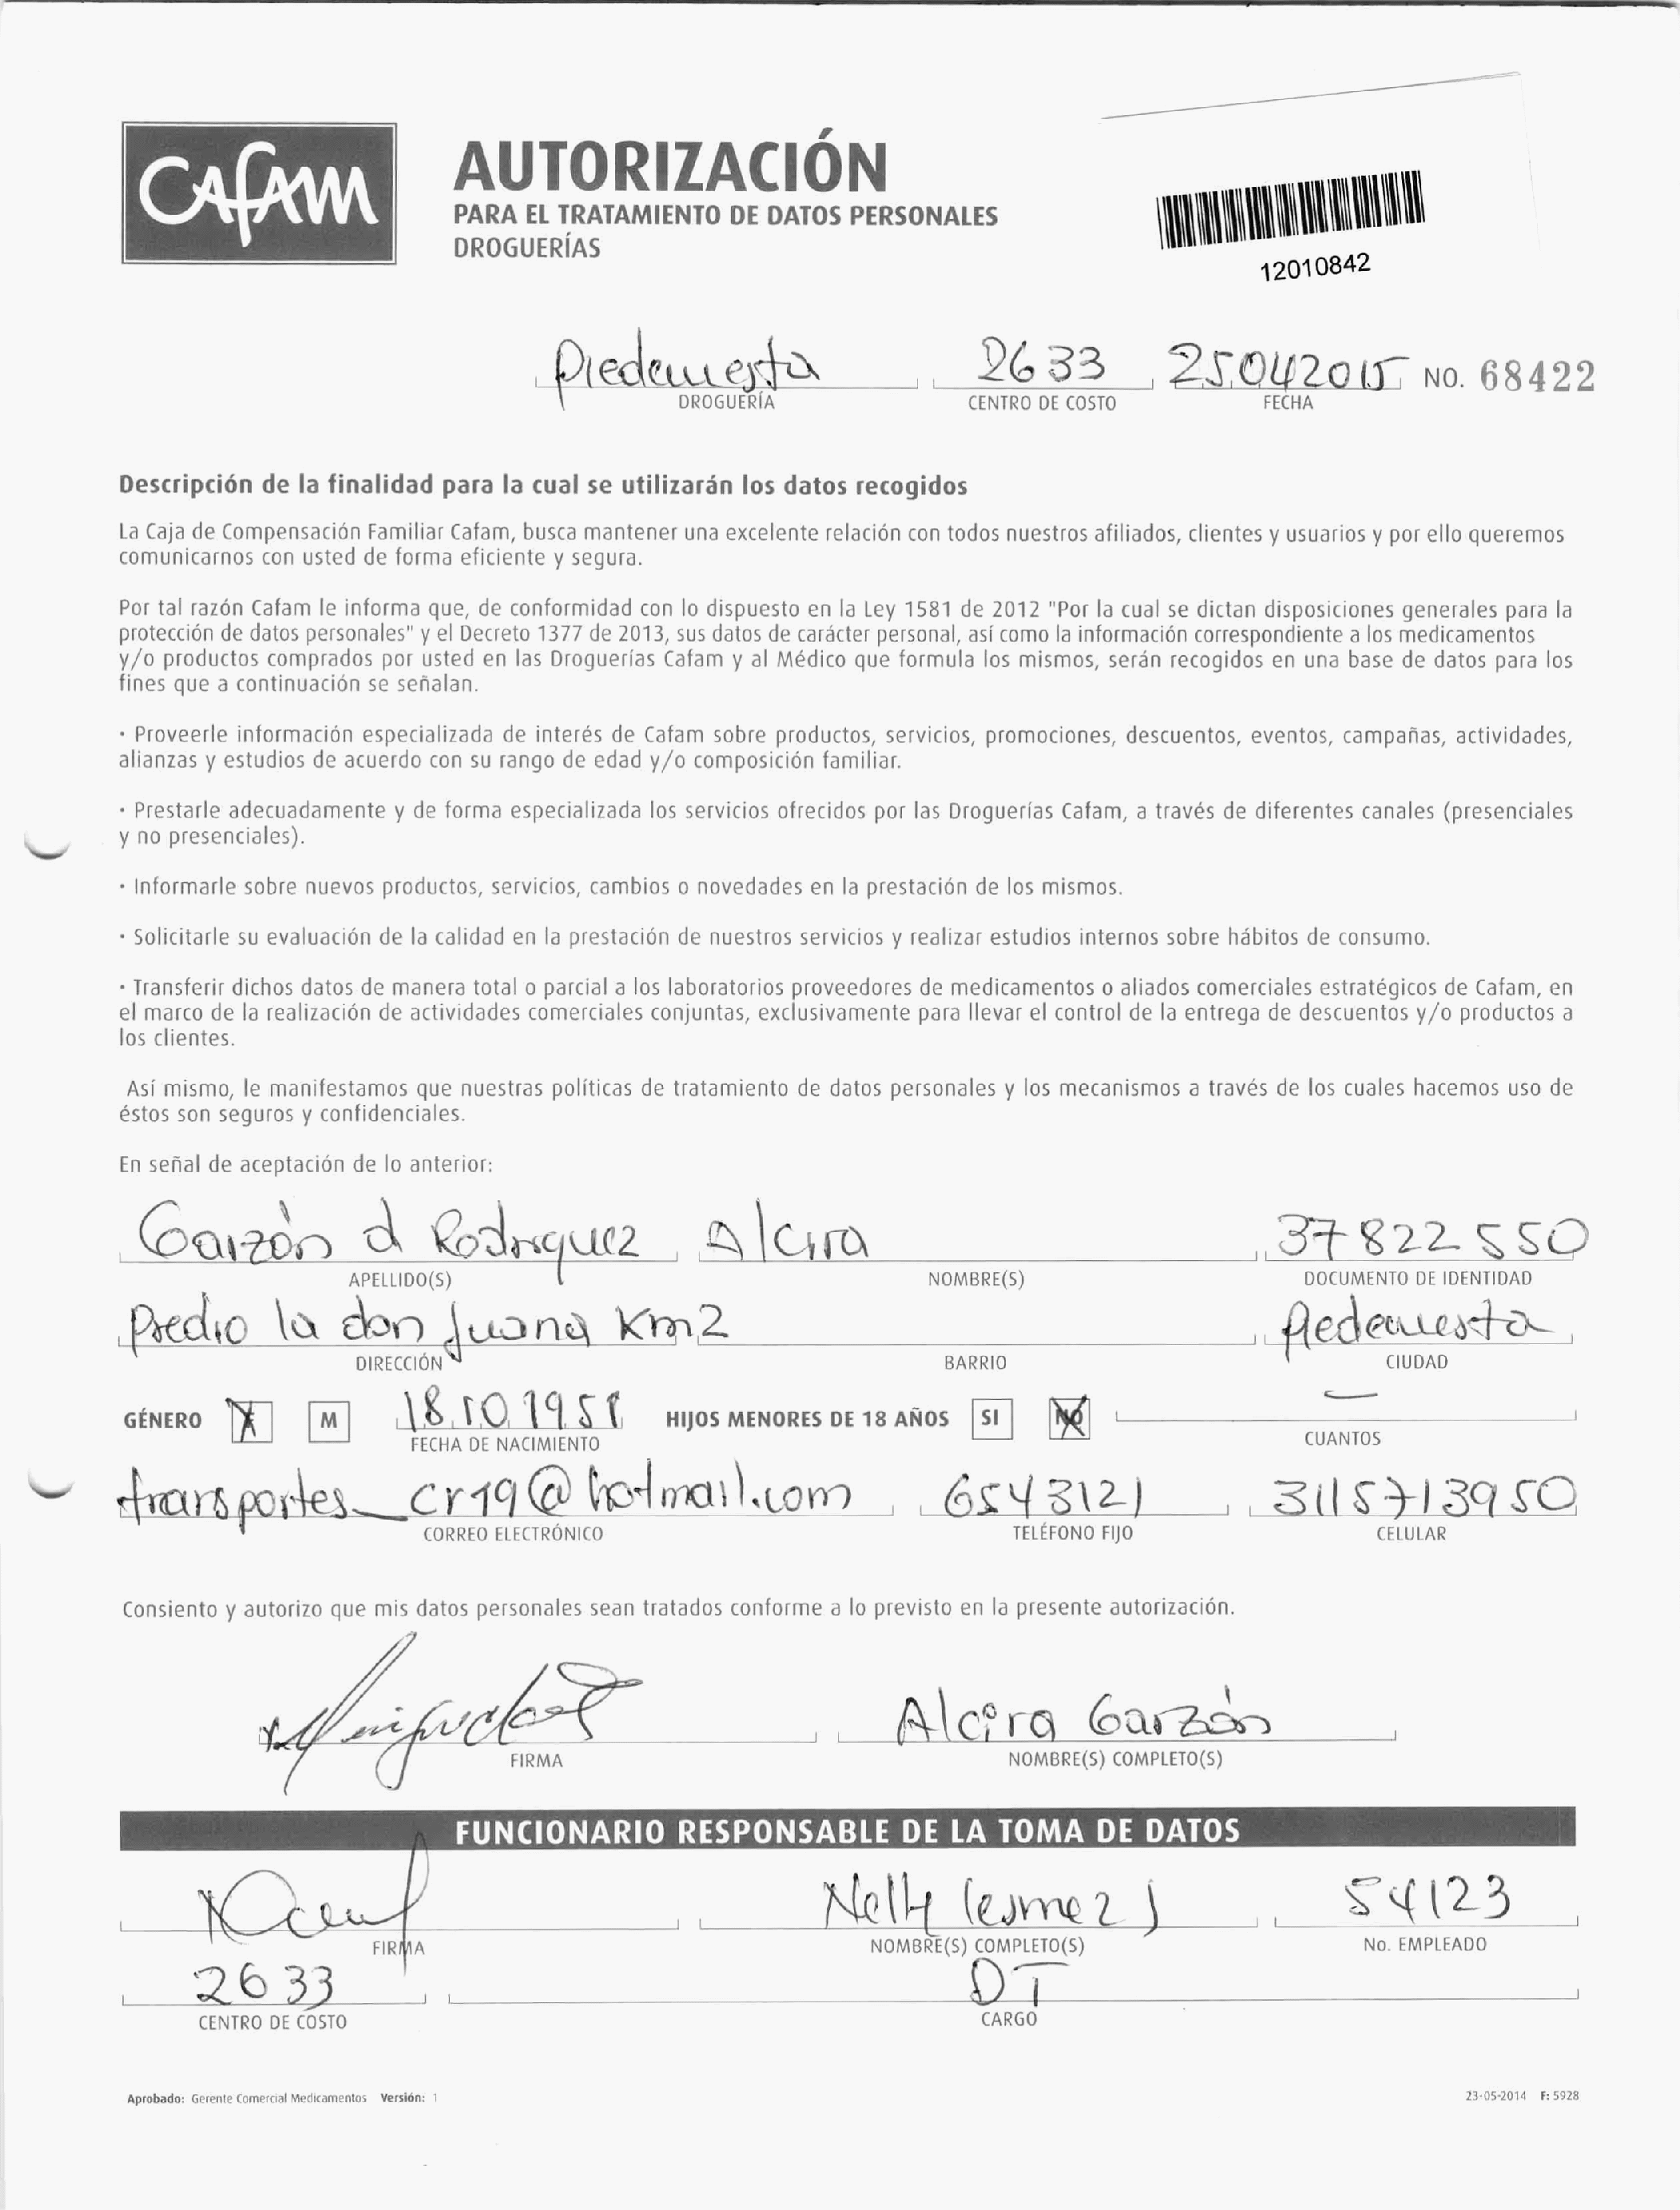 CAFAM
AUTORIZACIÓN
PARA EL TRATAMIENTO DE DATOS PERSONALES
DROGUERÍAS
12010842
Piedecuesta 2633 25042015 NO. 68422
DROGUERÍA CENTRO DE COSTO FECHA
Descripción de la finalidad para la cual se utilizarán los datos recogidos
La Caja de Compensación Familiar Cafam, busca mantener una excelente relación con todos nuestros afiliados, clientes y usuarios y por ello queremos
comunicarnos con usted de forma eficiente y segura.
Por tal razón Cafam le informa que, de conformidad con lo dispuesto en la Ley 1581 de 2012 "Por la cual se dictan disposiciones generales para la
protección de datos personales" y el Decreto 1377 de 2013, sus datos de carácter personal, así como la información correspondiente a los medicamentos
y/o productos comprados por usted en las Droguerías Cafam y al Médico que formula los mismos, serán recogidos en una base de datos para los
fines que a continuación se señalan.
· Proveerle información especializada de interés de Cafam sobre productos, servicios, promociones, descuentos, eventos, campañas, actividades,
alianzas y estudios de acuerdo con su rango de edad y/o composición familiar.
· Prestarle adecuadamente y de forma especializada los servicios ofrecidos por las Droguerías Cafam, a través de diferentes canales (presenciales
y no presenciales).
· Informarle sobre nuevos productos, servicios, cambios o novedades en la prestación de los mismos.
· Solicitarle su evaluación de la calidad en la prestación de nuestros servicios y realizar estudios internos sobre hábitos de consumo.
· Transferir dichos datos de manera total o parcial a los laboratorios proveedores de medicamentos o aliados comerciales estratégicos de Cafam, en
el marco de la realización de actividades comerciales conjuntas, exclusivamente para llevar el control de la entrega de descuentos y/o productos a
los clientes.
Así mismo, le manifestamos que nuestras políticas de tratamiento de datos personales y los mecanismos a través de los cuales hacemos uso de
éstos son seguros y confidenciales.
En señal de aceptación de lo anterior:
Garzón d Rodriguez Alcira 37822550
APELLIDO(S) NOMBRE(S) DOCUMENTO DE IDENTIDAD
Predio la don Juana Km2 Piedecuesta
DIRECCIÓN BARRIO CIUDAD
GÉNERO F M 18101951 HIJOS MENORES DE 18 AÑOS SI NO —
FECHA DE NACIMIENTO CUANTOS
transportes_cr19@hotmail.com 6543121 3115713950
CORREO ELECTRÓNICO TELÉFONO FIJO CELULAR
Consiento y autorizo que mis datos personales sean tratados conforme a lo previsto en la presente autorización.
Alcira Garzón
FIRMA NOMBRE(S) COMPLETO(S)
FUNCIONARIO RESPONSABLE DE LA TOMA DE DATOS
Nelly 54123
FIRMA NOMBRE(S) COMPLETO(S) No. EMPLEADO
2633 DT
CENTRO DE COSTO CARGO
Aprobado: Gerente Comercial Medicamentos Versión: 1 23-05-2014 F: 5928